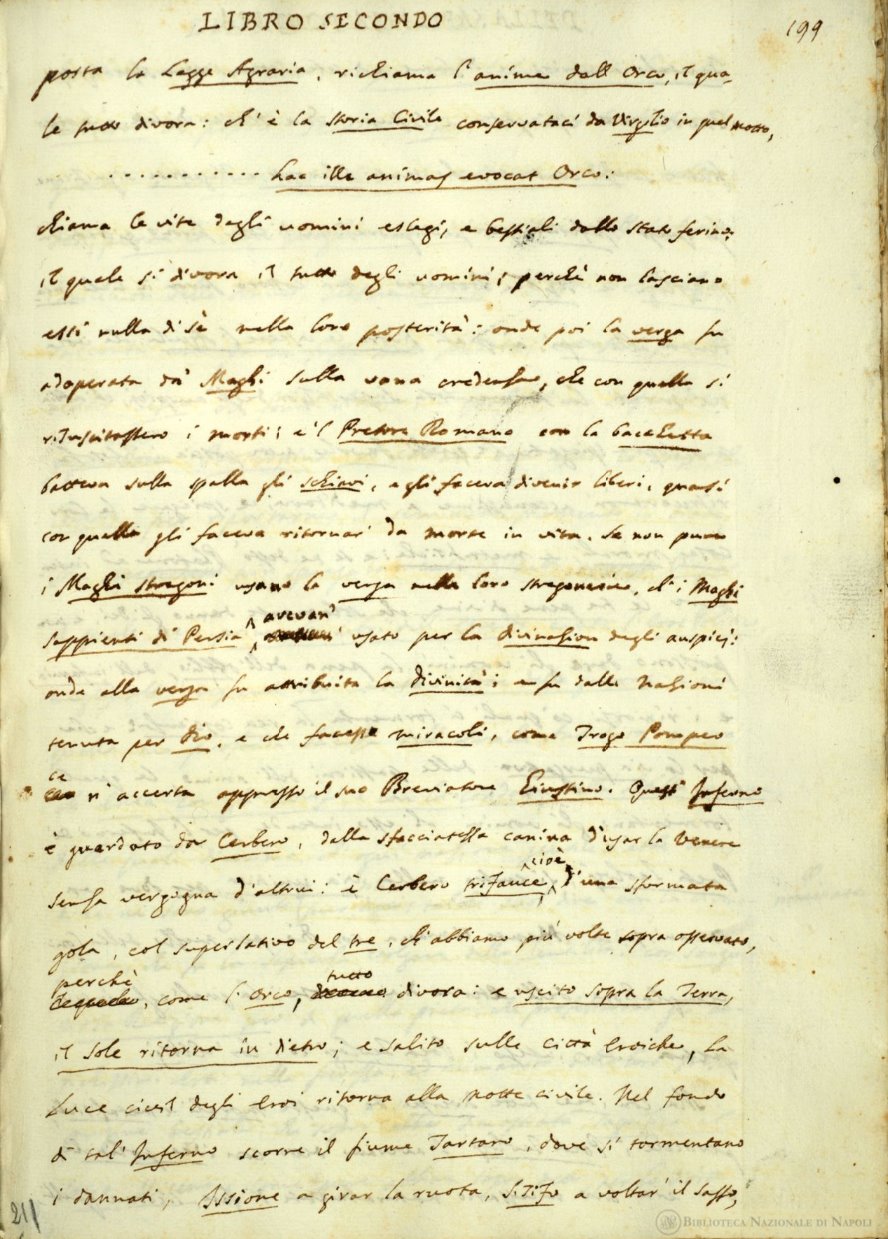 LIBRO SECONDO
199
porta la Legge Agraria, richiama l'anime dall Orco, il qua-
le tutto divora: ch'è la Storia Civile conservataci da Virgilio in quel motto,
. . . . . . . . . . . hac ille animas evocat Orco:
chiama le vite degli uomini eslegi, e bestiali dallo Stato ferino;
il quale si divora il tutto degli uomini, perchè non lasciano
essi nulla di sè nella loro posterità: onde poi la verga fu
adoperata da' Maghi sulla vana credenza, che con quella si
risuscitassero i morti; e 'l Pretore Romano con la bacchetta
batteva sulla spalla gli schiavi, e gli faceva divenir liberi, quasi
con quella gli faceva ritornar' da morte in vita. Se non pure
i Maghi stregoni usano la verga nelle loro stregonerie, ch' i Maghi
sappienti di Persia avevan' usato per la divinazion degli auspicj:
onde alla verga fu attribuita la divinità; e fu dalle Nazioni
tenuta per dio, e che facesse miracoli, come Trogo Pompeo
ce n' accerta appresso il suo Breviatore Giustino. Quest' Inferno
è guardato da Cerbero, dalla sfacciatezza canina d'usar la Venere
senza vergogna d'altrui: è Cerbero trifauce, cioè d'una sformata
gola, col superlativo del tre, ch'abbiamo più volte sopra osservato,
perchè, come l'Orco, tutto divora: e uscito sopra la Terra,
il Sole ritorna in dietro; e salito sulle città eroiche, la
Luce civil degli Eroi ritorna alla notte civile. Nel fondo
di tal' Inferno scorre il fiume Tartaro, dove si tormentano
i dannati, Issione a girar la ruota, Sisifo a voltar' il sasso,
211
BIBLIOTECA NAZIONALE DI NAPOLI